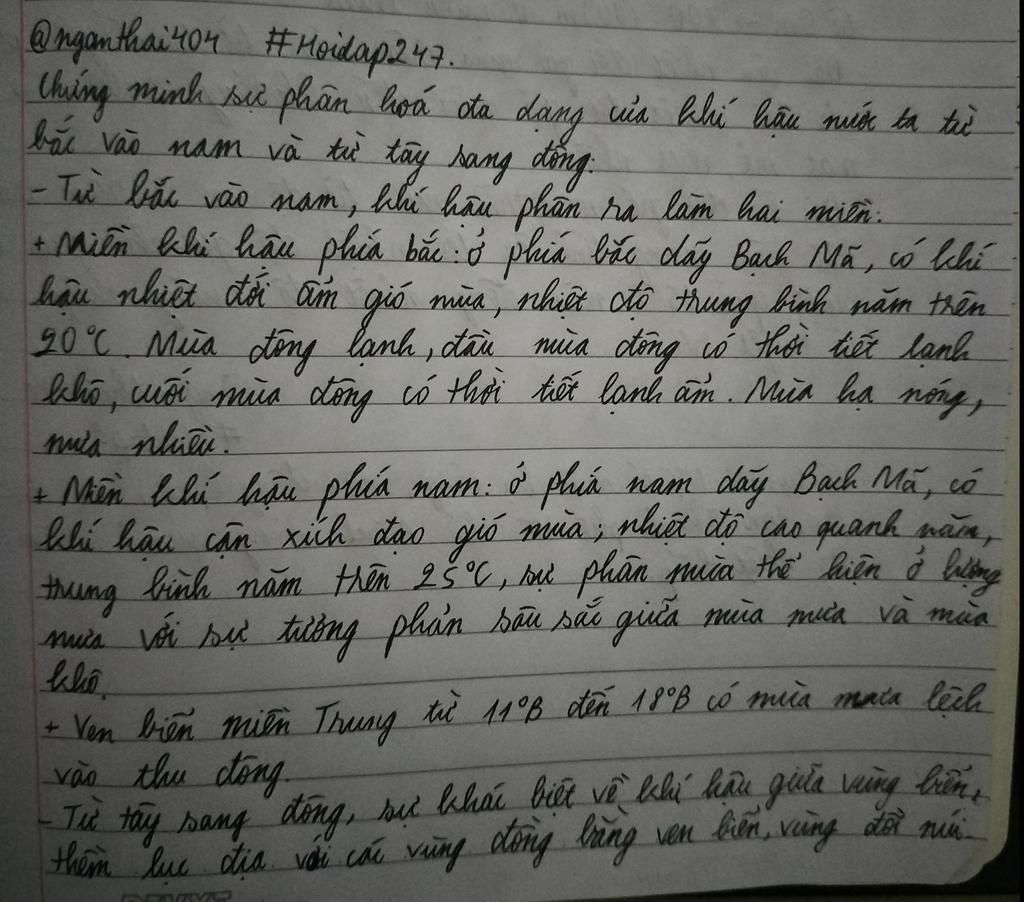 @nganthai404 #Hoidap247.
Chứng minh sự phân hoá đa dạng của khí hậu nước ta từ
bắc vào nam và từ tây sang đông:
- Từ bắc vào nam, khí hậu phân ra làm hai miền:
+ Miền khí hậu phía bắc: ở phía bắc dãy Bạch Mã, có khí
hậu nhiệt đới ẩm gió mùa, nhiệt độ trung bình năm trên
20°C. Mùa đông lạnh, đầu mùa đông có thời tiết lạnh
khô, cuối mùa đông có thời tiết lạnh ẩm. Mùa hạ nóng,
mưa nhiều.
+ Miền khí hậu phía nam: ở phía nam dãy Bạch Mã, có
khí hậu cận xích đạo gió mùa; nhiệt độ cao quanh năm,
trung bình năm trên 25°C, sự phân mùa thể hiện ở lượng
mưa với sự tương phản sâu sắc giữa mùa mưa và mùa
khô.
+ Ven biển miền Trung từ 11°B đến 18°B có mùa mưa lệch
vào thu đông.
- Từ tây sang đông, sự khác biệt về khí hậu giữa vùng biển,
thềm lục địa với các vùng đồng bằng ven biển, vùng đồi núi.